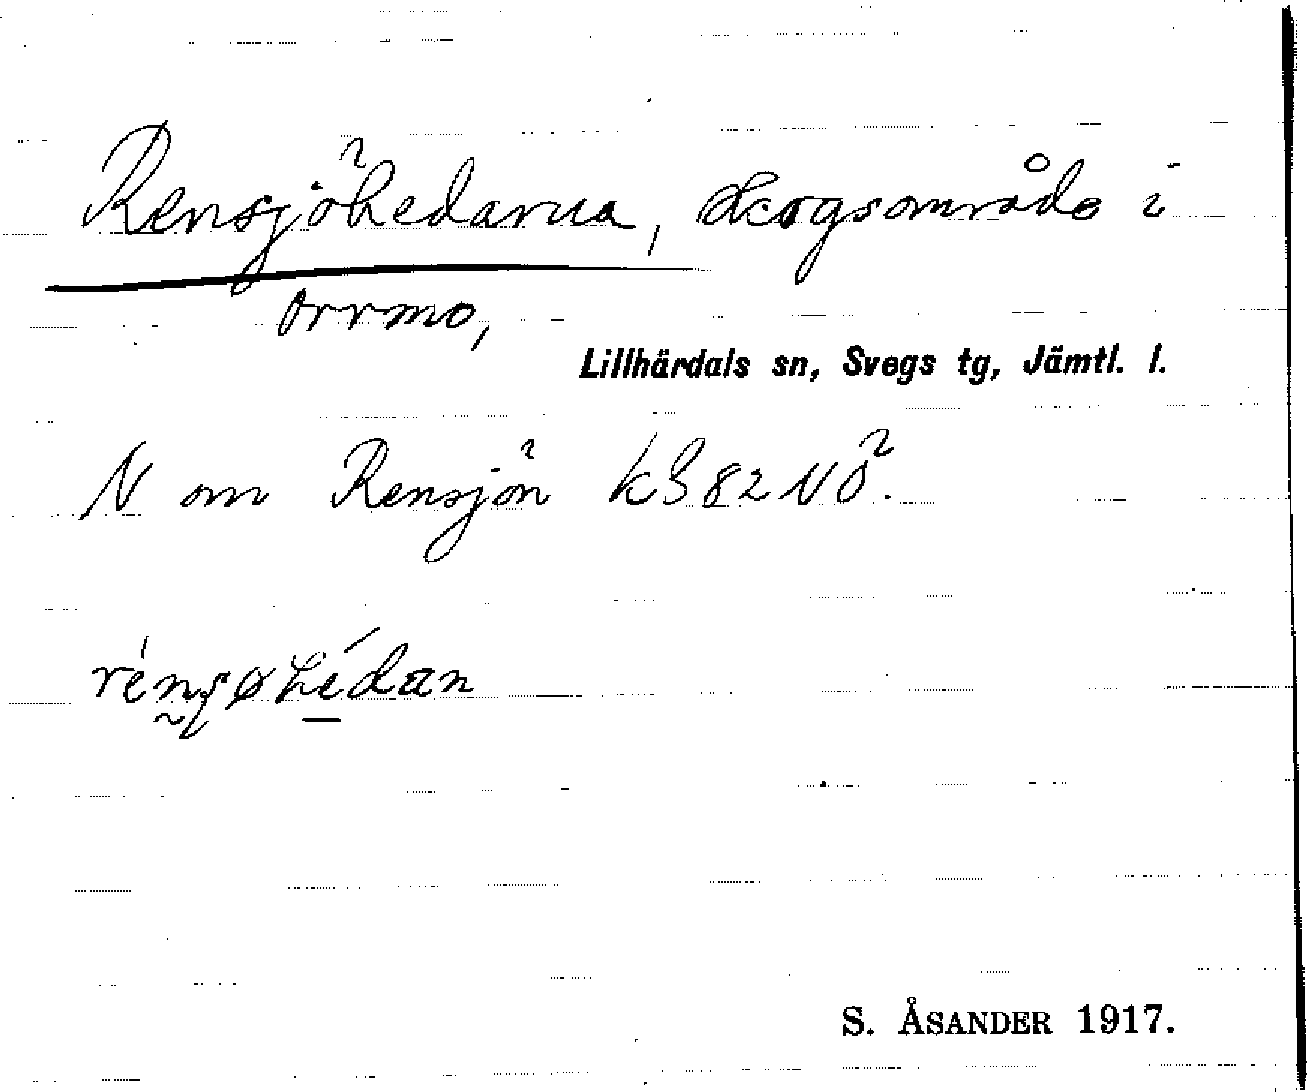 Rensjöhedarna, skogsområde i
Orrmo,
Lillhärdals sn, Svegs tg, Jämtl. l.
N om Rensjön kB 82 NÖ.
S. ÅSANDER 1917.